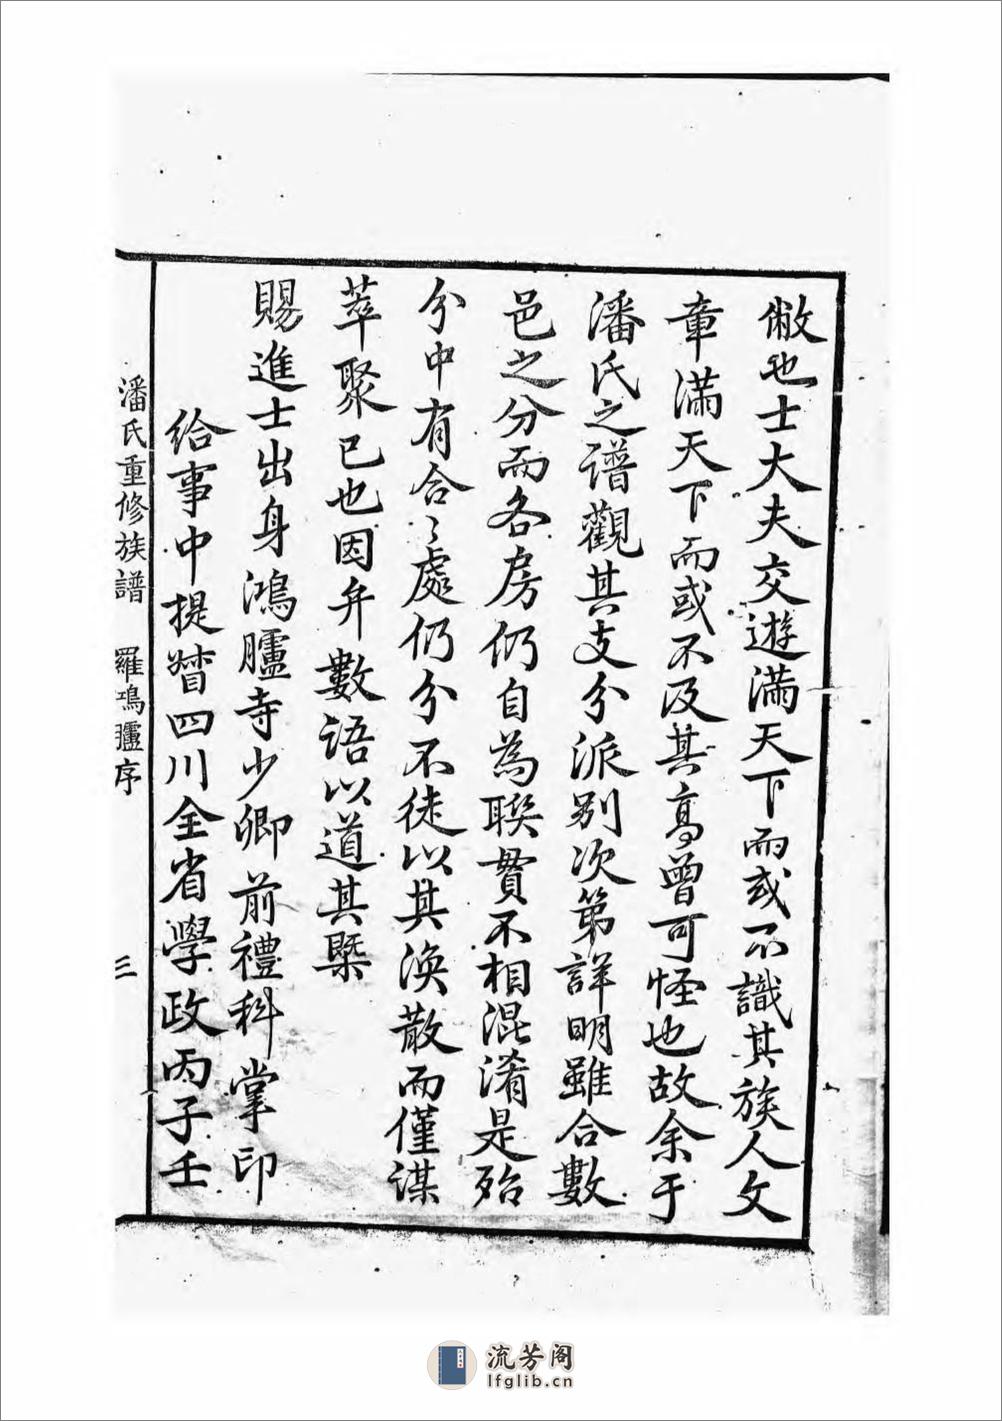 儌也士大夫交遊滿天下而或不識其族人文
章滿天下而或不及其高曾可怪也故余于
潘氏之譜觀其支分派别次第詳明雖合數
邑之分而各房仍自為聯貫不相混淆是殆
分中有合〻處仍分不徒以其渙散而僅謀
萃聚已也因弁數語以道其槩
賜進士出身鴻臚寺少卿前禮科掌印
給事中提督四川全省學政丙子壬
潘氏重修族譜 羅鴻臚序 三
流芳阁
lfglib.cn